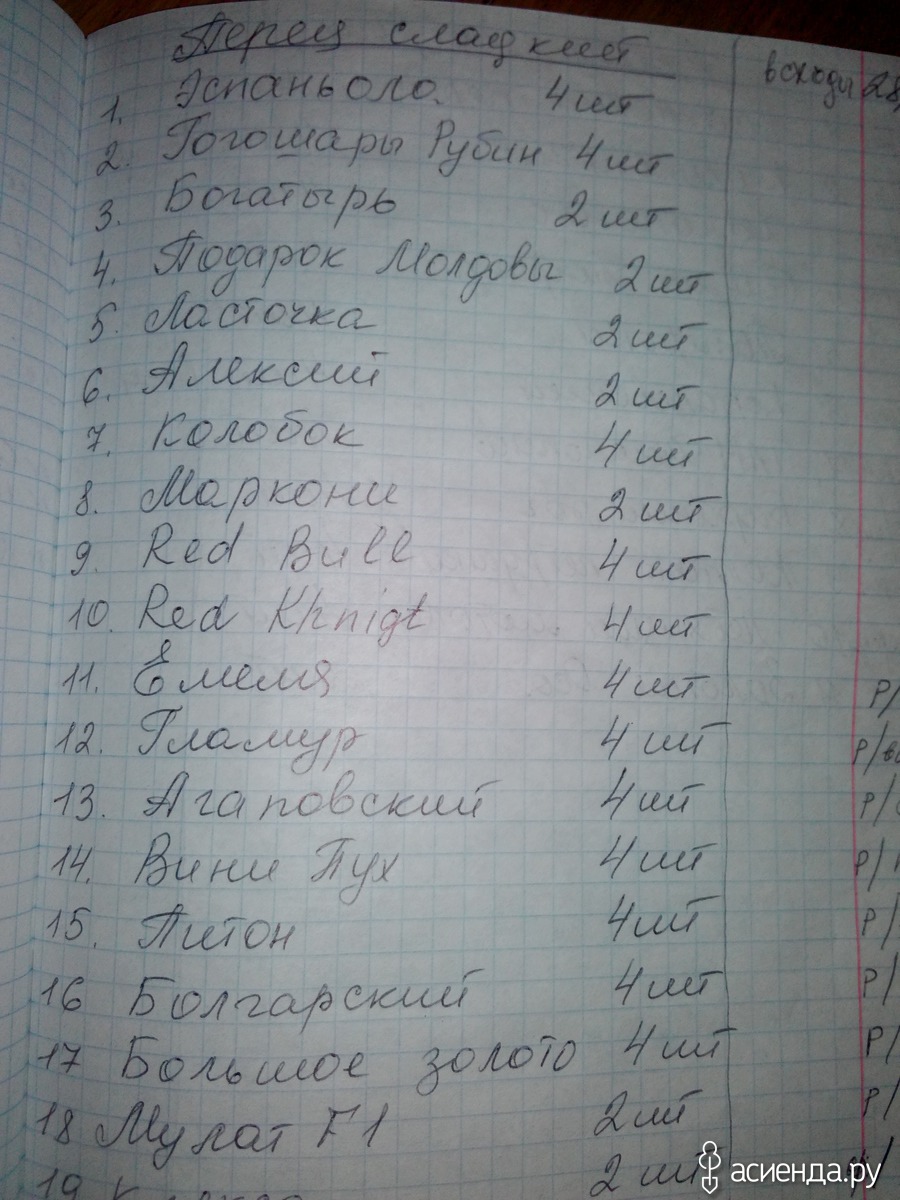 Перец сладкий
всходы 28,
1. Эспаньоло. 4 шт
2. Гогошары Рубин 4 шт
3. Богатырь 2 шт
4. Подарок Молдовы 2 шт
5. Ласточка 2 шт
6. Алексий 2 шт
7. Колобок 4 шт
8. Маркони 2 шт
9. Red Bull 4 шт
10. Red Khnigt 4 шт
11. Емеля 4 шт Р/
12. Гламур 4 шт Р/
13. Агаповский 4 шт Р/
14. Вини Пух 4 шт Р/
15. Питон 4 шт Р/
16 Болгарский 4 шт Р/
17 Большое золото 4 шт Р/
18 Мулат F1 2 шт Р/
19 2 шт
асиенда.ру